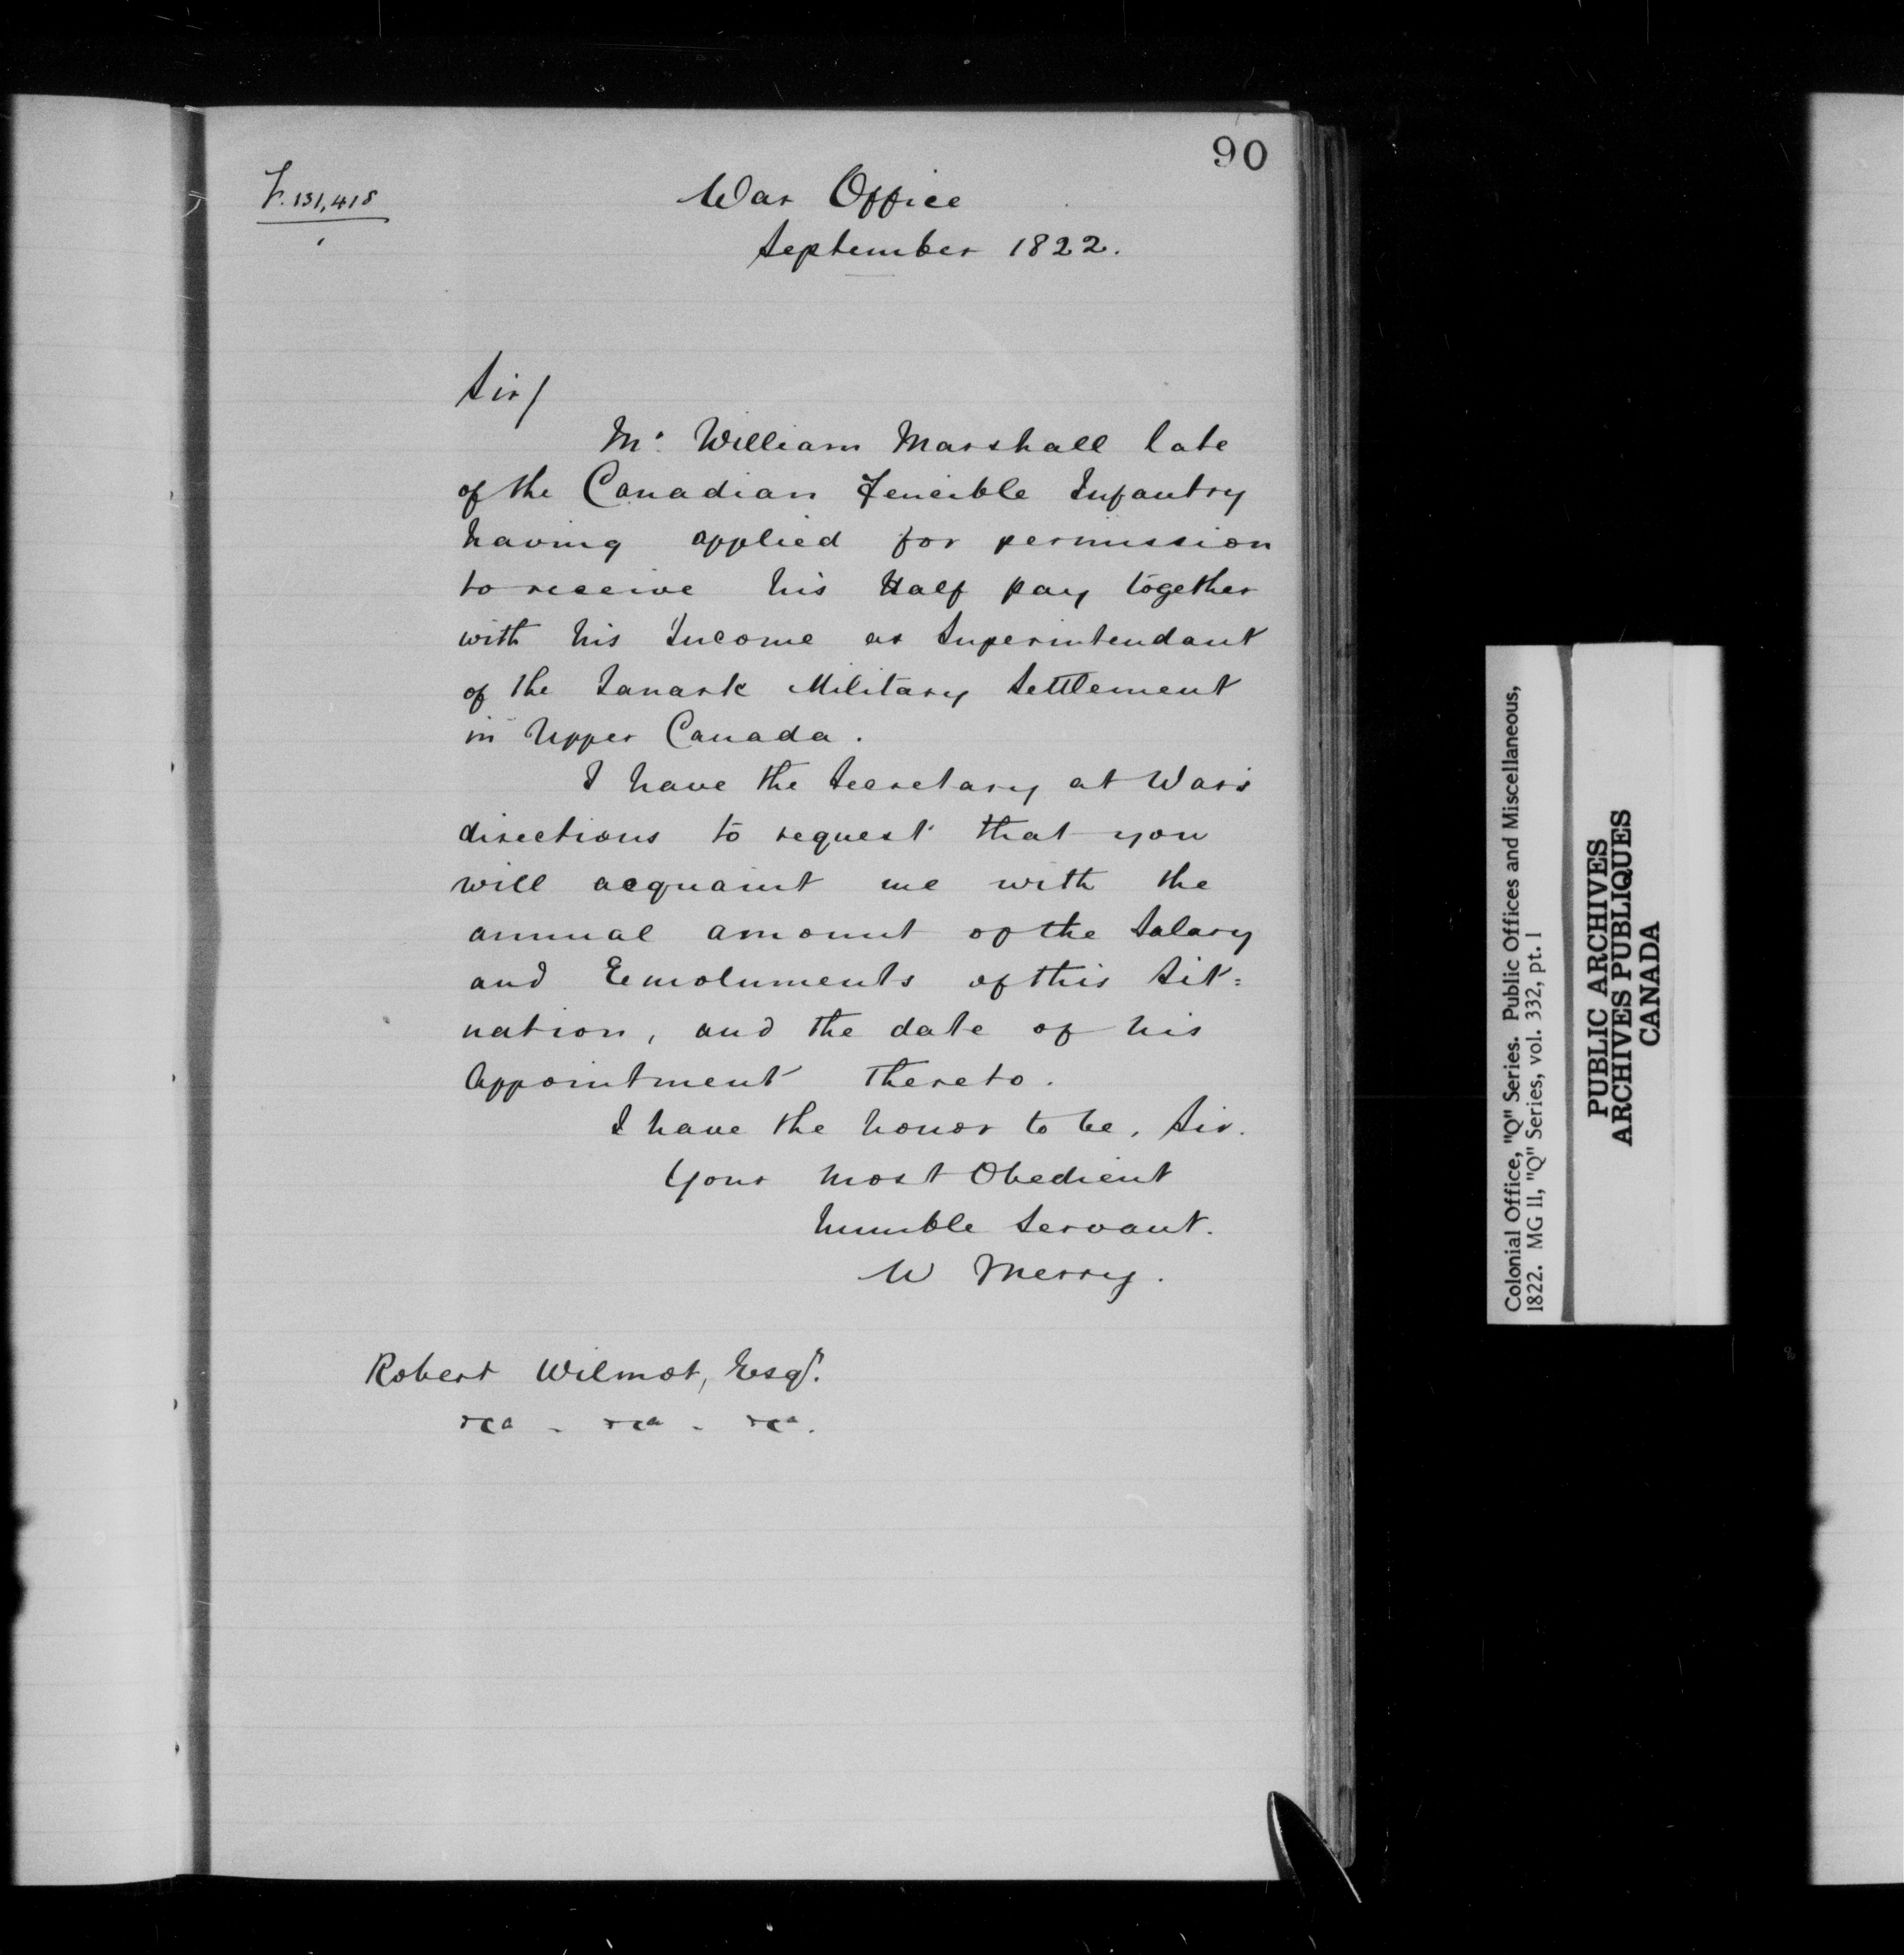 90
F. 131,418
War Office
September 1822.
Sir/
Mr. William Marshall late
of the Canadian Fencible Infantry
having applied for permission
to receive his Half pay together
with his Income as Superintendant
of the Lanark Military Settlement
in Upper Canada.
I have the Secretary at War's
directions to request that you
will acquaint me with the
annual amount of the Salary
and Emoluments of this Sit=
uation, and the date of his
Appointment thereto.
I have the honor to be, Sir.
Your most Obedient
humble Servant.
W Merry.
Robert Wilmot, Esqr.
&ca - &ca - &ca.
Colonial Office, "Q" Series. Public Offices and Miscellaneous,
1822. MG 11, "Q" Series, vol. 332, pt. 1
PUBLIC ARCHIVES
ARCHIVES PUBLIQUES
CANADA